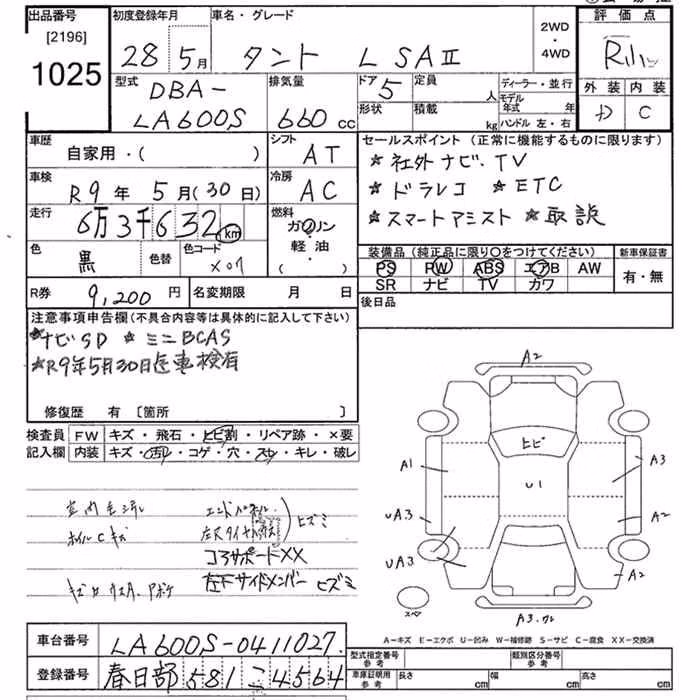 出品番号
[2196]
1025
初度登録年月
28 5月
車名・グレード
タント L SAⅡ
2WD
・
4WD
評価点
外装 内装
D C
型式
DBA-
LA600S
排気量
660 cc
ドア
5
定員
人
形状
積載
kg
ディーラー・並行
モデル年式 年
ハンドル 左・右
車歴
自家用・( )
シフト
AT
車検
R9年 5月(30日)
冷房
AC
走行
6万3千632km
燃料
ガソリン
・
軽油
( ・ )
色
黒
色替
色コード
X07
R券
9,200円
名変期限 月 日
セールスポイント(正常に機能するものに限ります)
★社外ナビ.TV
★ドラレコ ★ETC
★スマートアシスト ★取説
装備品(純正品に限り○をつけてください)
PS PW ABS エアB AW
SR ナビ TV カワ
新車保証書
有・無
後日品
注意事項申告欄(不具合内容等は具体的に記入して下さい)
★ナビSD ★ミニBCAS
★R9年5月30日迄車検有
修復歴 有 〔箇所 〕
検査員
記入欄
FW キズ・飛石・ヒビ割・リペア跡・×要
内装 キズ・汚れ・コゲ・穴・スレ・キレ・破レ
ホイルCキズ
エンドパネル
ヒズミ
コアサポートXX
左下サイドメンバー ヒズミ
A2
ヒビ
U1
A1
A3
UA3
A2
UA3
A2
スペア
A3.ワレ
A-キズ E-エクボ U-凹み W-補修跡 S-サビ C-腐食 XX-交換済
車台番号
LA600S-0411027
登録番号
春日部 581 こ 4564
型式指定番号
参考
類別区分番号
参考
車庫証明用
参考
長さ cm
幅 cm
高さ cm